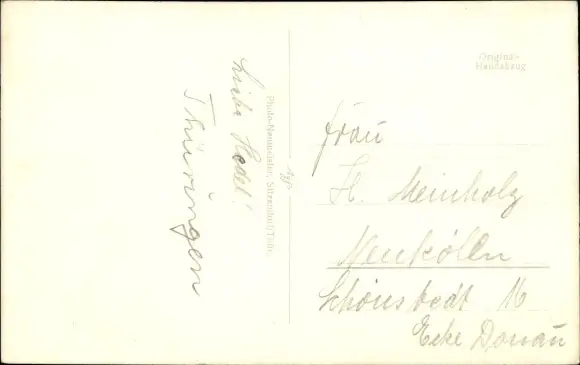 Liebe Hedel!
Thüringen
Photo-Neumeister,
Original-
Handabzug
Frau
H. Meinholz
Neukölln
Schönstedt 16
Ecke Donau